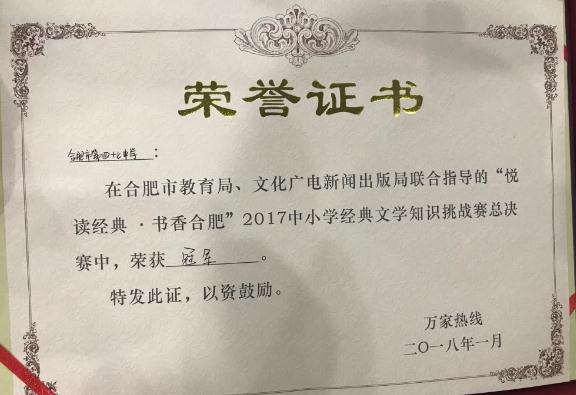 荣誉证书
合肥市第四十七中学：
在合肥市教育局、文化广电新闻出版局联合指导的“悦
读经典 · 书香合肥”2017中小学经典文学知识挑战赛总决
赛中，荣获 冠军 。
特发此证，以资鼓励。
万家热线
二〇一八年一月